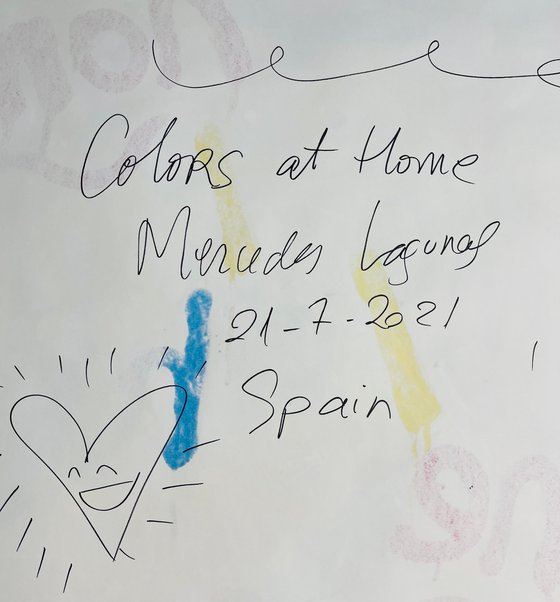 Colors at Home
Mercedes Lagunas
21-7-2021
Spain